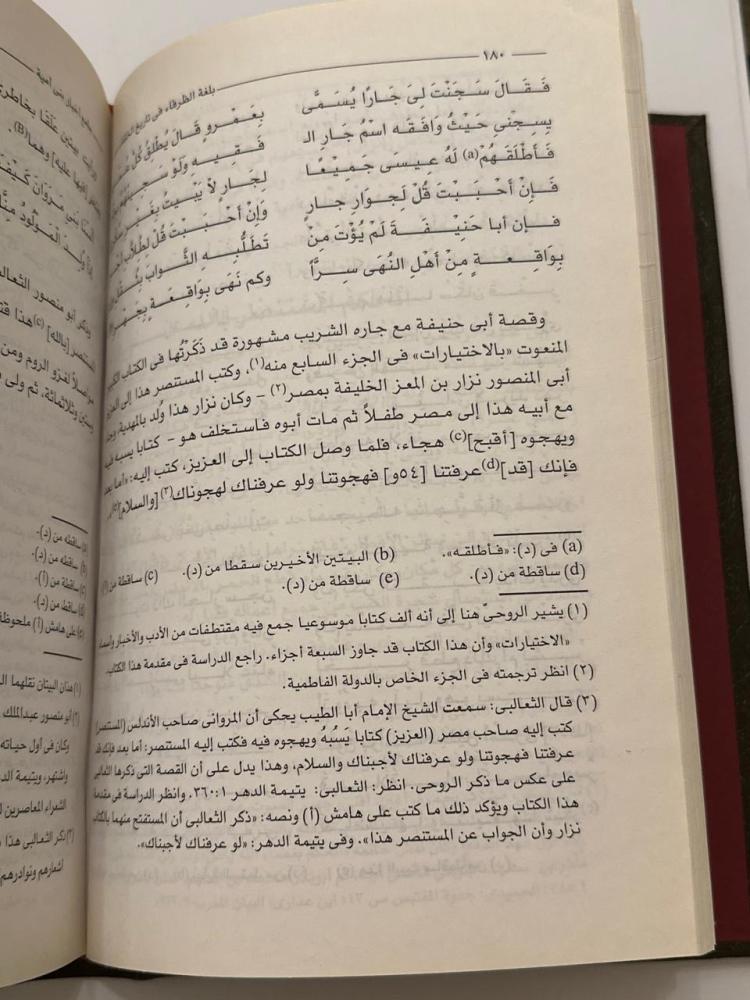 ١٨٠
بلغة الظرفاء فى تاريخ
فَقَالَ سَجَنْتَ لِىَ جَارًا يُسَمَّى بِعَمْروٍ قَالَ يُطْلَقُ كُلُّ
بِسِجْنِي حَيْثُ وَافَقَه اسْمُ جَارِ الـ فَقِيهِ وَلَوْ
فَأَطْلَقَهُمْ(a) لَهُ عِيسَى جَمِيْعًا لِجَارٍ لاَ يَبِيْتُ بِغَيْرِ
فَإِنْ أَحْبَبْتَ قُلْ لِجِوَارِ جارٍ وَإِنْ أَحْبَبْتَ قُلْ لِطِلاَبِ
فإن أبا حَنِيْفَةَ لَمْ يُؤْتَ مِنْ تَطَلُّبِهِ الثَّوابَ
بِوَاقِعةٍ مِنْ أَهْلِ النُهَى سِرًّا وكم نَهَى بِوَاقِعَةٍ
وقصة أبى حنيفة مع جاره الشريب مشهورة قد ذَكَرْتُها فى الكتاب
المنعوت «بالاختيارات» فى الجزء السابع منه(١)، وكتب المستنصر هذا إلى
أبى المنصور نزار بن المعز الخليفة بمصر(٢) – وكان نزار هذا وُلد بالمهدية
مع أبيه هذا إلى مصر طفلاً ثم مات أبوه فاستخلف هو – كتابا يسبه فيه
ويهجوه [أقبح](c) هجاء، فلما وصل الكتاب إلى العزيز، كتب إليه: «أما بعد
فإنك [قد](d) عرفتنا [٥٤و] فهجوتنا ولو عرفناك لهجوناك(٣) [والسلام](e)
(a) فى (د): «فأطلقه». (b) البيتين الأخيرين سقطا من (د). (c) ساقطة من
(d) ساقطة من (د). (e) ساقطة من (د).
(١) يشير الروحىّ هنا إلى أنه ألف كتابا موسوعيا جمع فيه مقتطفات من الأدب والأخبار
«الاختيارات» وأن هذا الكتاب قد جاوز السبعة أجزاء. راجع الدراسة فى مقدمة هذا الكتاب.
(٢) انظر ترجمته فى الجزء الخاص بالدولة الفاطمية.
(٣) قال الثعالبى: سمعت الشيخ الإمام أبا الطيب يحكى أن المروانى صاحب الأندلس (المستنصر)
كتب إليه صاحب مصر (العزيز) كتابا يَسُبهُ ويهجوه فيه فكتب إليه المستنصر: أما بعد فإنك قد
عرفتنا فهجوتنا ولو عرفناك لأجبناك والسلام، وهذا يدل على أن القصة التى ذكرها الثعالبى
على عكس ما ذكر الروحى. انظر: الثعالبى: يتيمة الدهر ١: ٣٦٠. وانظر الدراسة فى مقدمة
هذا الكتاب ويؤكد ذلك ما كتب على هامش (أ) ونصه: «ذكر الثعالبى أن المستفتح منهما بالكتاب
نزار وأن الجواب عن المستنصر هذا». وفى يتيمة الدهر: «لو عرفناك لأجبناك».